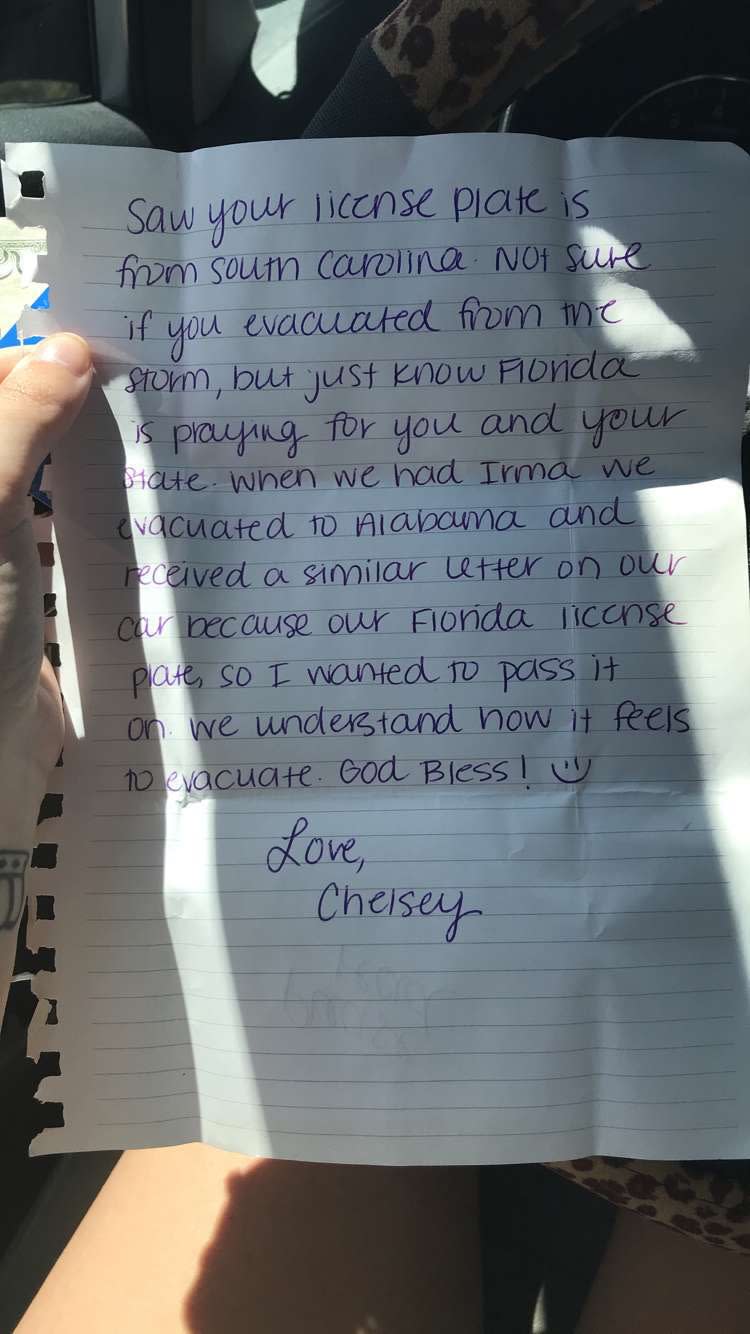 Saw your license plate is
from south carolina. Not sure
if you evacuated from the
storm, but just know Florida
is praying for you and your
state. when we had Irma we
evacuated to Alabama and
received a similar letter on our
car because our Florida license
plate, so I wanted to pass it
on. we understand how it feels
to evacuate. God Bless! :)
Love,
Chelsey